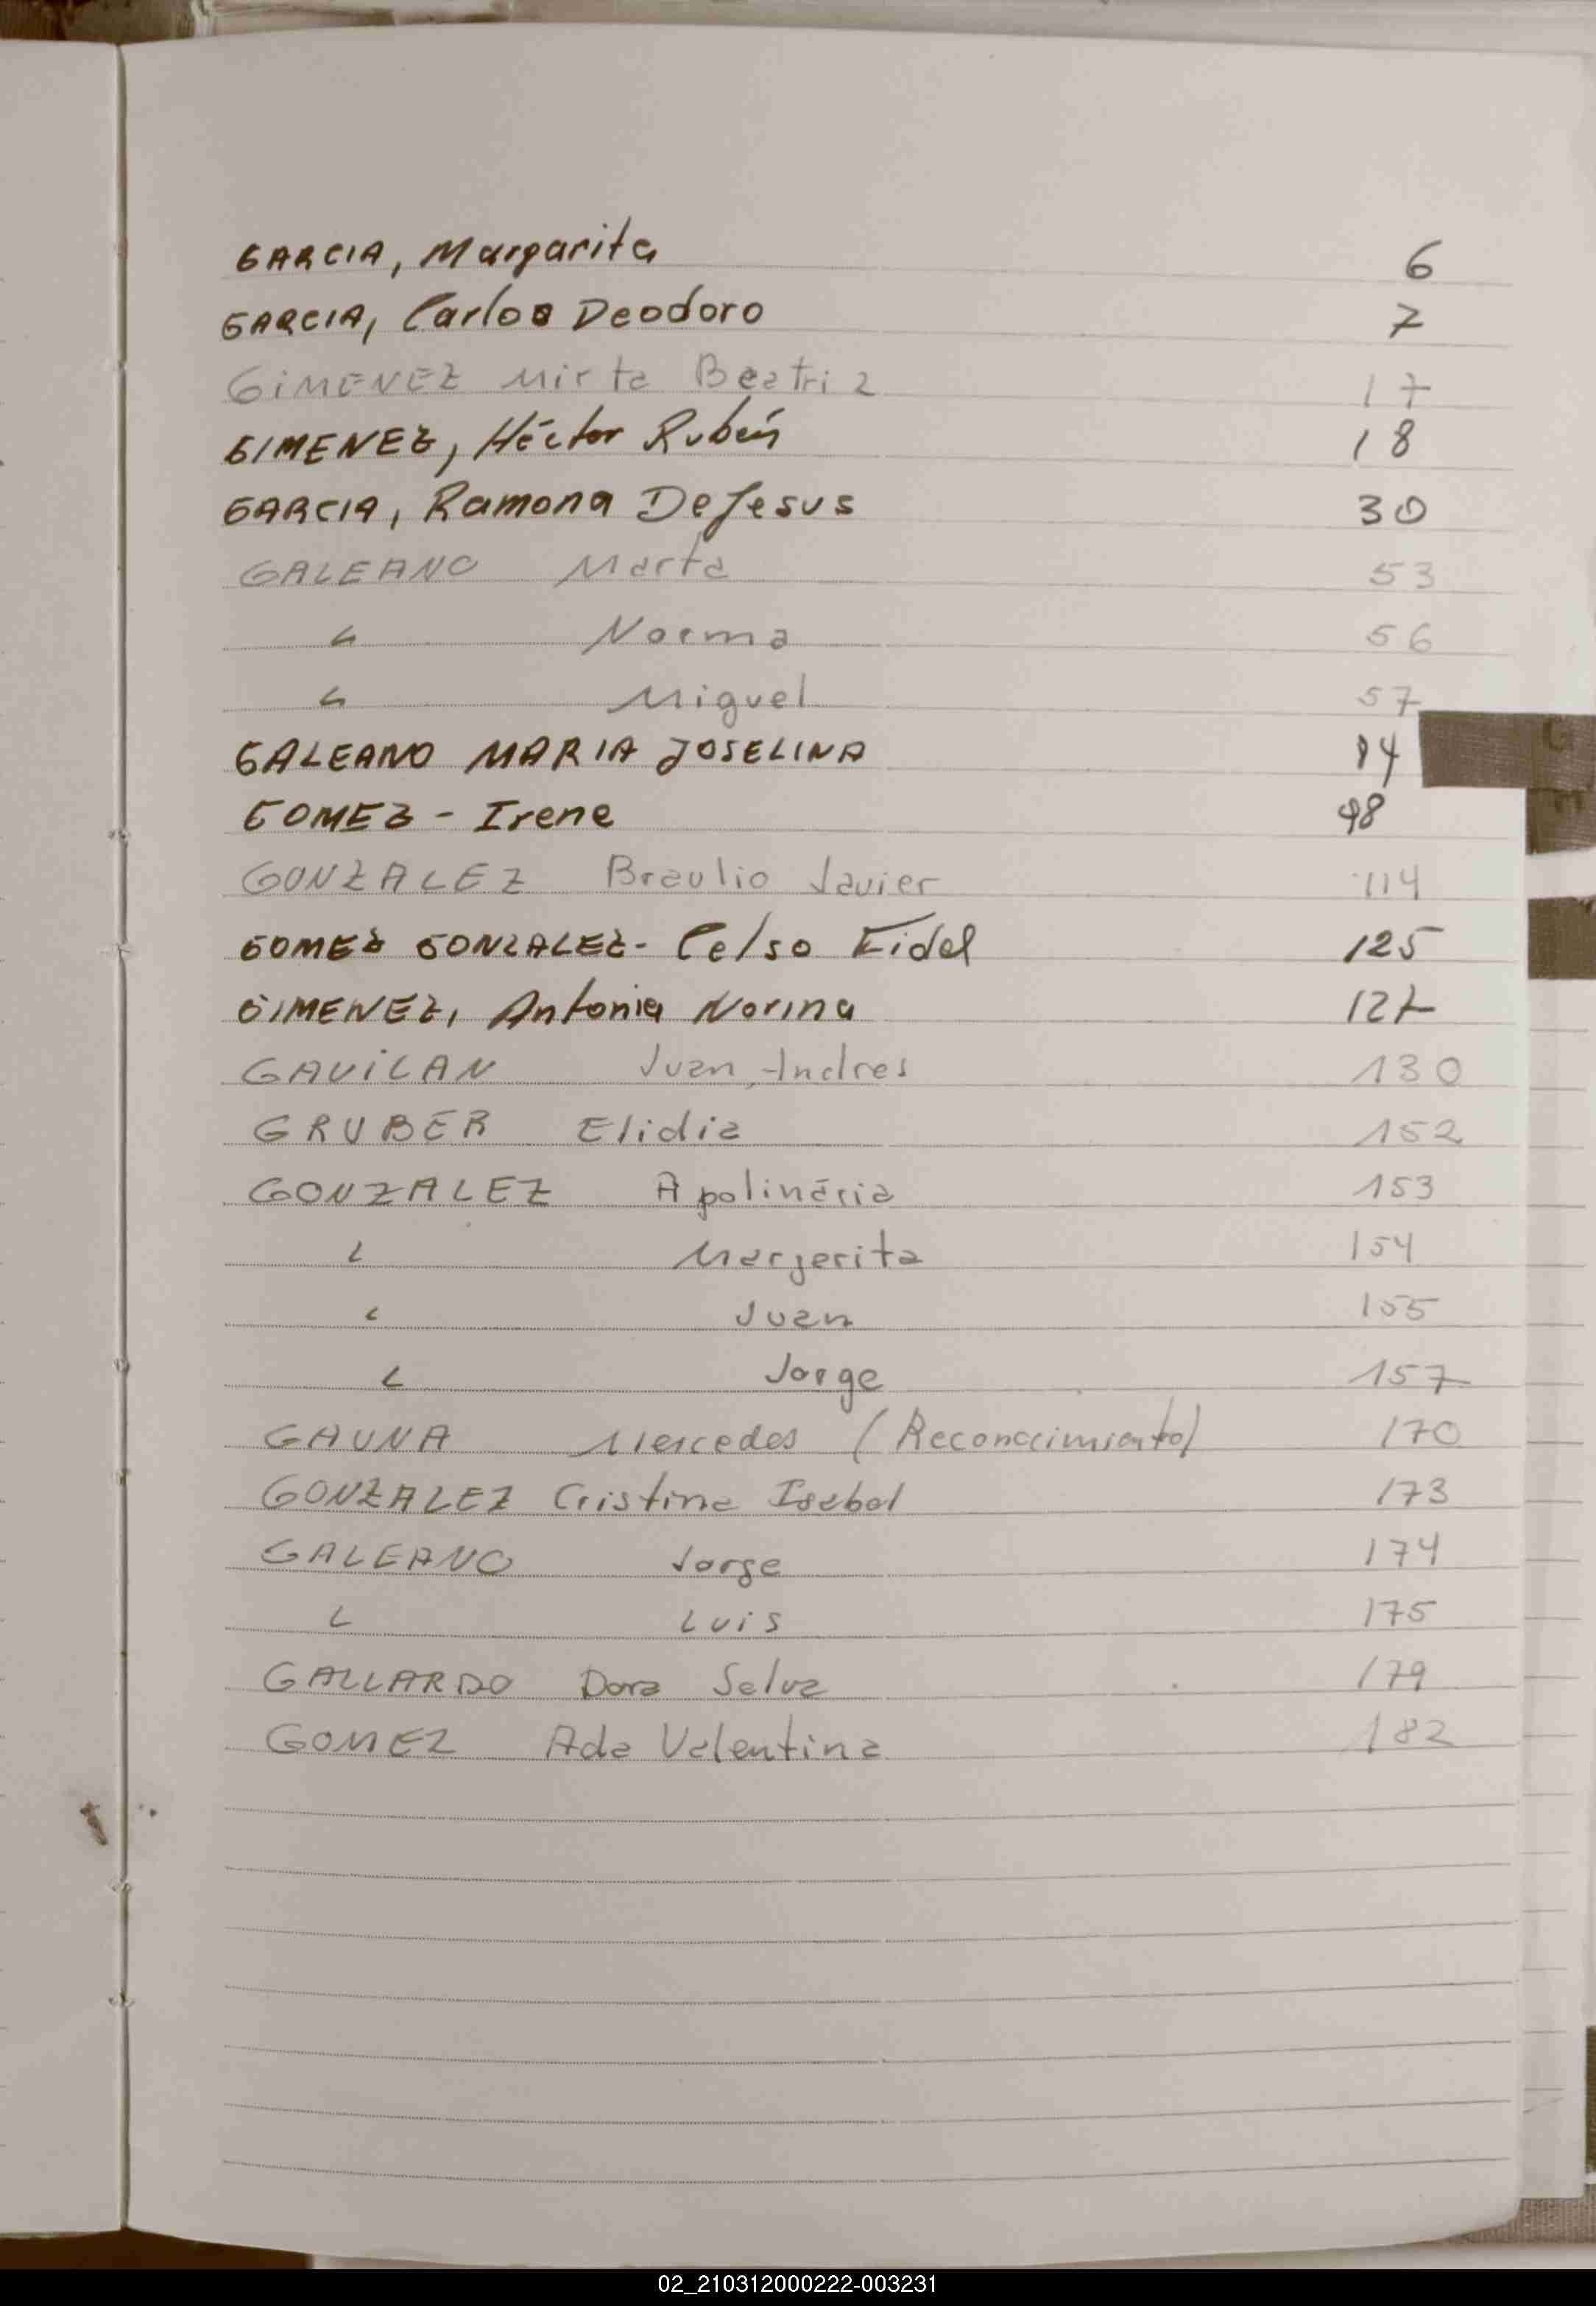 GARCIA, Margarita 6
GARCIA, Carlos Deodoro 7
GIMENEZ Mirta Beatriz 17
GIMENEZ, Héctor Rubén 18
GARCIA, Ramona DeJesus 30
GALEANO Marta 53
" Norma 56
" Miguel 57
GALEANO MARIA JOSELINA
GOMEZ - Irene 98
GONZALEZ Braulio Javier 114
GOMEZ GONZALEZ - Celso Fidel 125
GIMENEZ, Antonia Norina 127
GAVILAN Juan, Andres 130
GRUBER Elidia 152
GONZALEZ Apolinária 153
" Margarita 154
" Juan 155
" Jorge 157
GAUNA Mercedes (Reconocimiento) 170
GONZALEZ Cristina Isabel 173
GALEANO Jorge 174
" Luis 175
GALLARDO Dora Selva 179
GOMEZ Ada Valentina 182
02_210312000222-003231